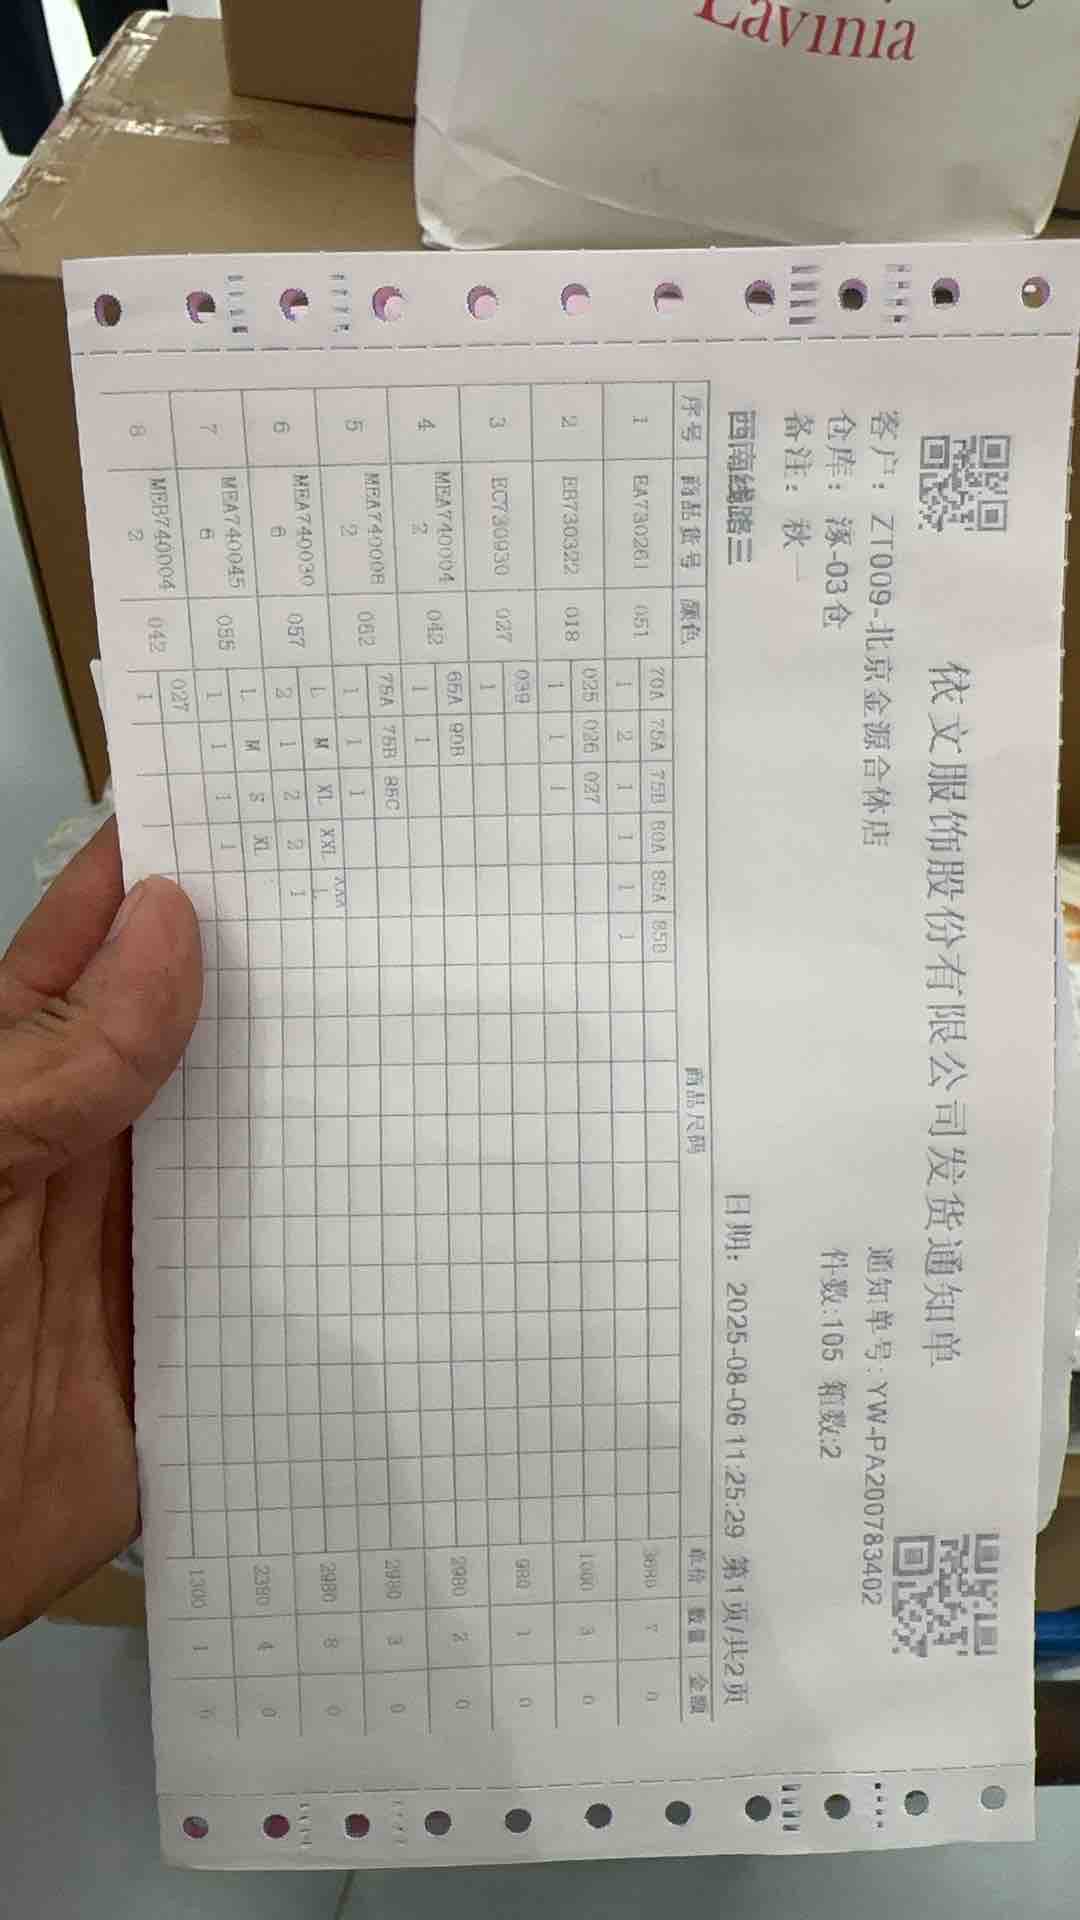 Lavinia
依文服饰股份有限公司发货通知单
客户：ZT009-北京金源合体店
通知单号:YW-PA200783402
仓库：涿-03仓
件数:105 箱数:2
备注：秋_
西南线路三
日期：2025-08-06 11:25:29 第1页/共2页
序号 商品货号 颜色 商品尺码 单价 数量 金额
70A 75A 75B 80A 85A 85B
1 EA730261 051 1 2 1 1 1 1 3680 7 0
025 026 027
2 EB730322 018 1 1 1 1000 3 0
039
3 EC730930 027 1 980 1 0
65A 90B
4 MEA7400042 042 1 1 2980 2 0
75A 75B 85C
5 MEA7400082 062 1 1 1 2980 3 0
L M XL XXL XXXL
6 MEA7400306 057 2 1 2 2 1 2980 8 0
L M S XL
7 MEA7400456 055 1 1 1 1 2380 4 0
027
8 MEB7400042 042 1 1300 1 0